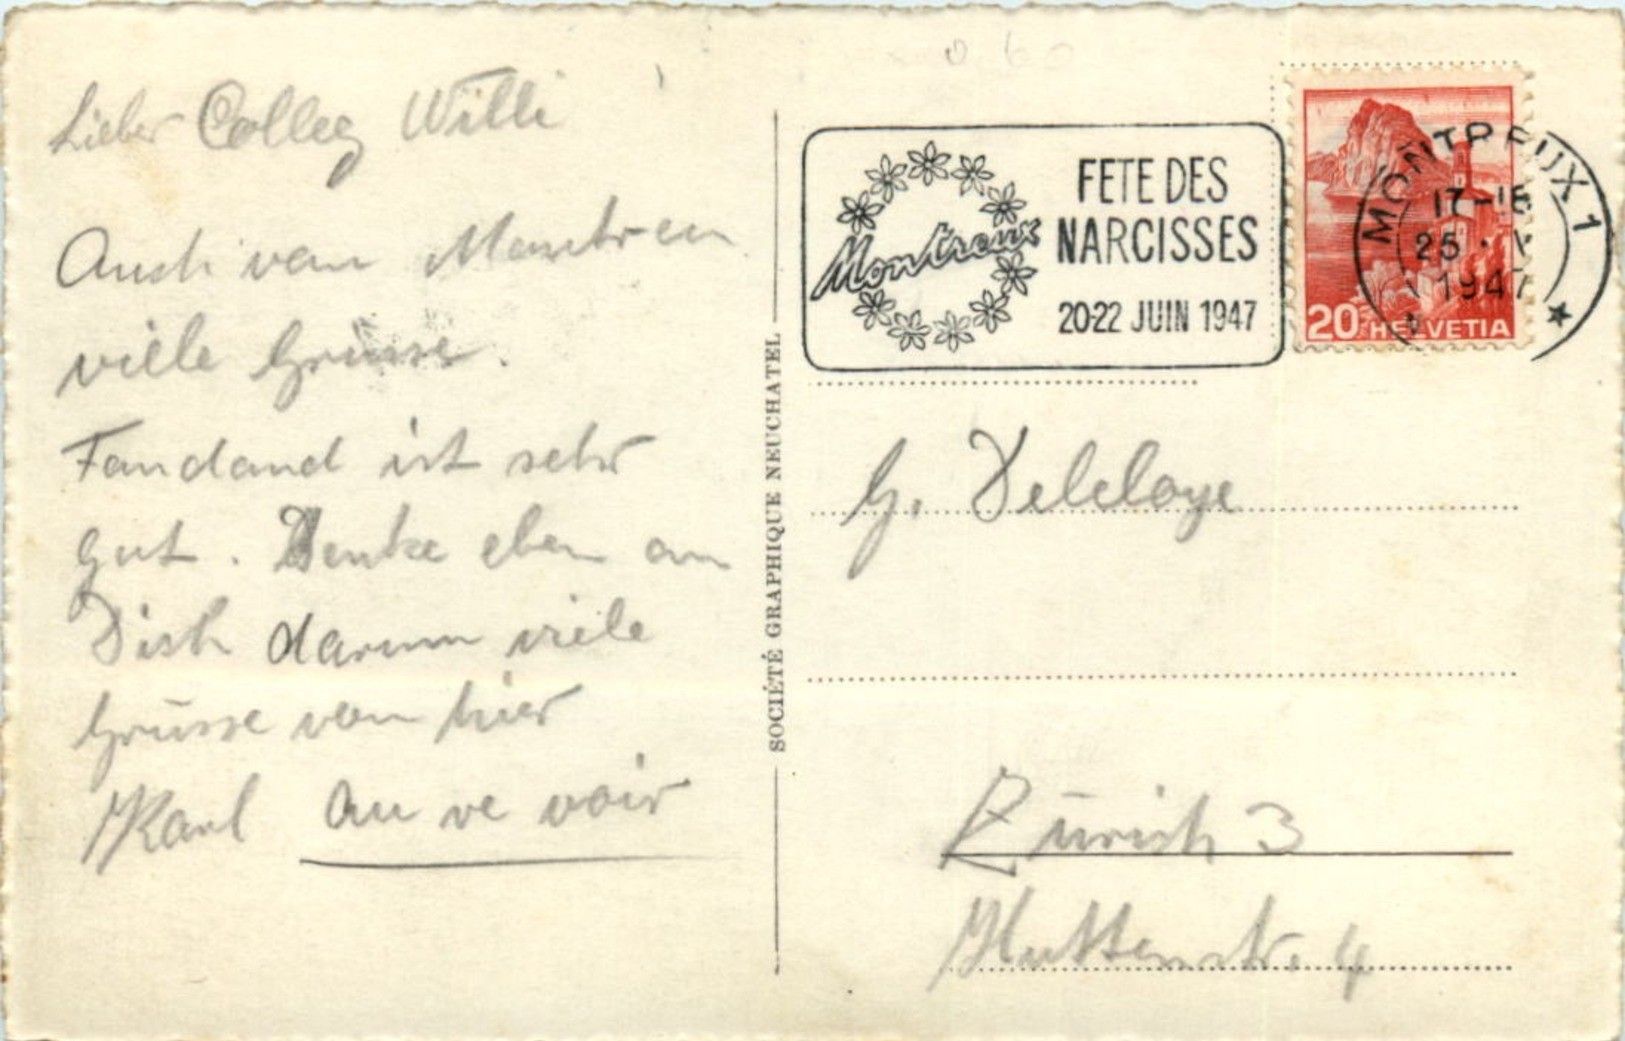 Lieber Colleg Willi
Auch von Montreu
viele Grüsse.
Fandand ist sehr
gut. Denke eben an
Dich darum viele
Grüsse von hier
Karl au re voir
SOCIÉTÉ GRAPHIQUE NEUCHATEL
Montreux
FETE DES
NARCISSES
20-22 JUIN 1947
MONTREUX 1
17-18
25
1947
20 HELVETIA
G. Deleloye
Zürich 3
Huttenstr. 4